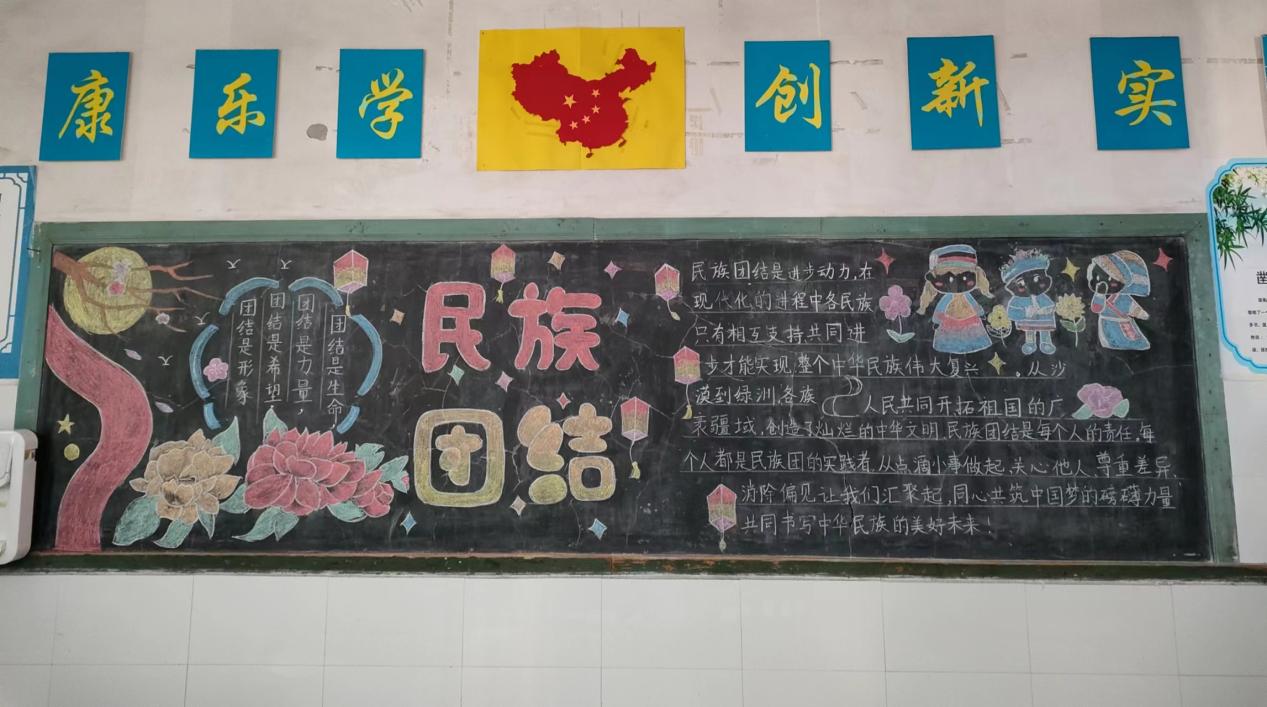 康 乐 学 创 新 实
团结是生命
团结是力量,
团结是希望
团结是形象
民族
团结
民族团结是进步动力,在
现代化的进程中各民族
只有相互支持共同进
步才能实现,整个中华民族伟大复兴。从沙
漠到绿洲,各族人民共同开拓祖国的广
袤疆域,创造了灿烂的中华文明,民族团结是每个人的责任,每
个人都是民族团的实践者,从点滴小事做起,关心他人,尊重差异,
消除偏见让我们汇聚起,同心共筑中国梦的磅礴力量
共同书写中华民族的美好未来!
凿